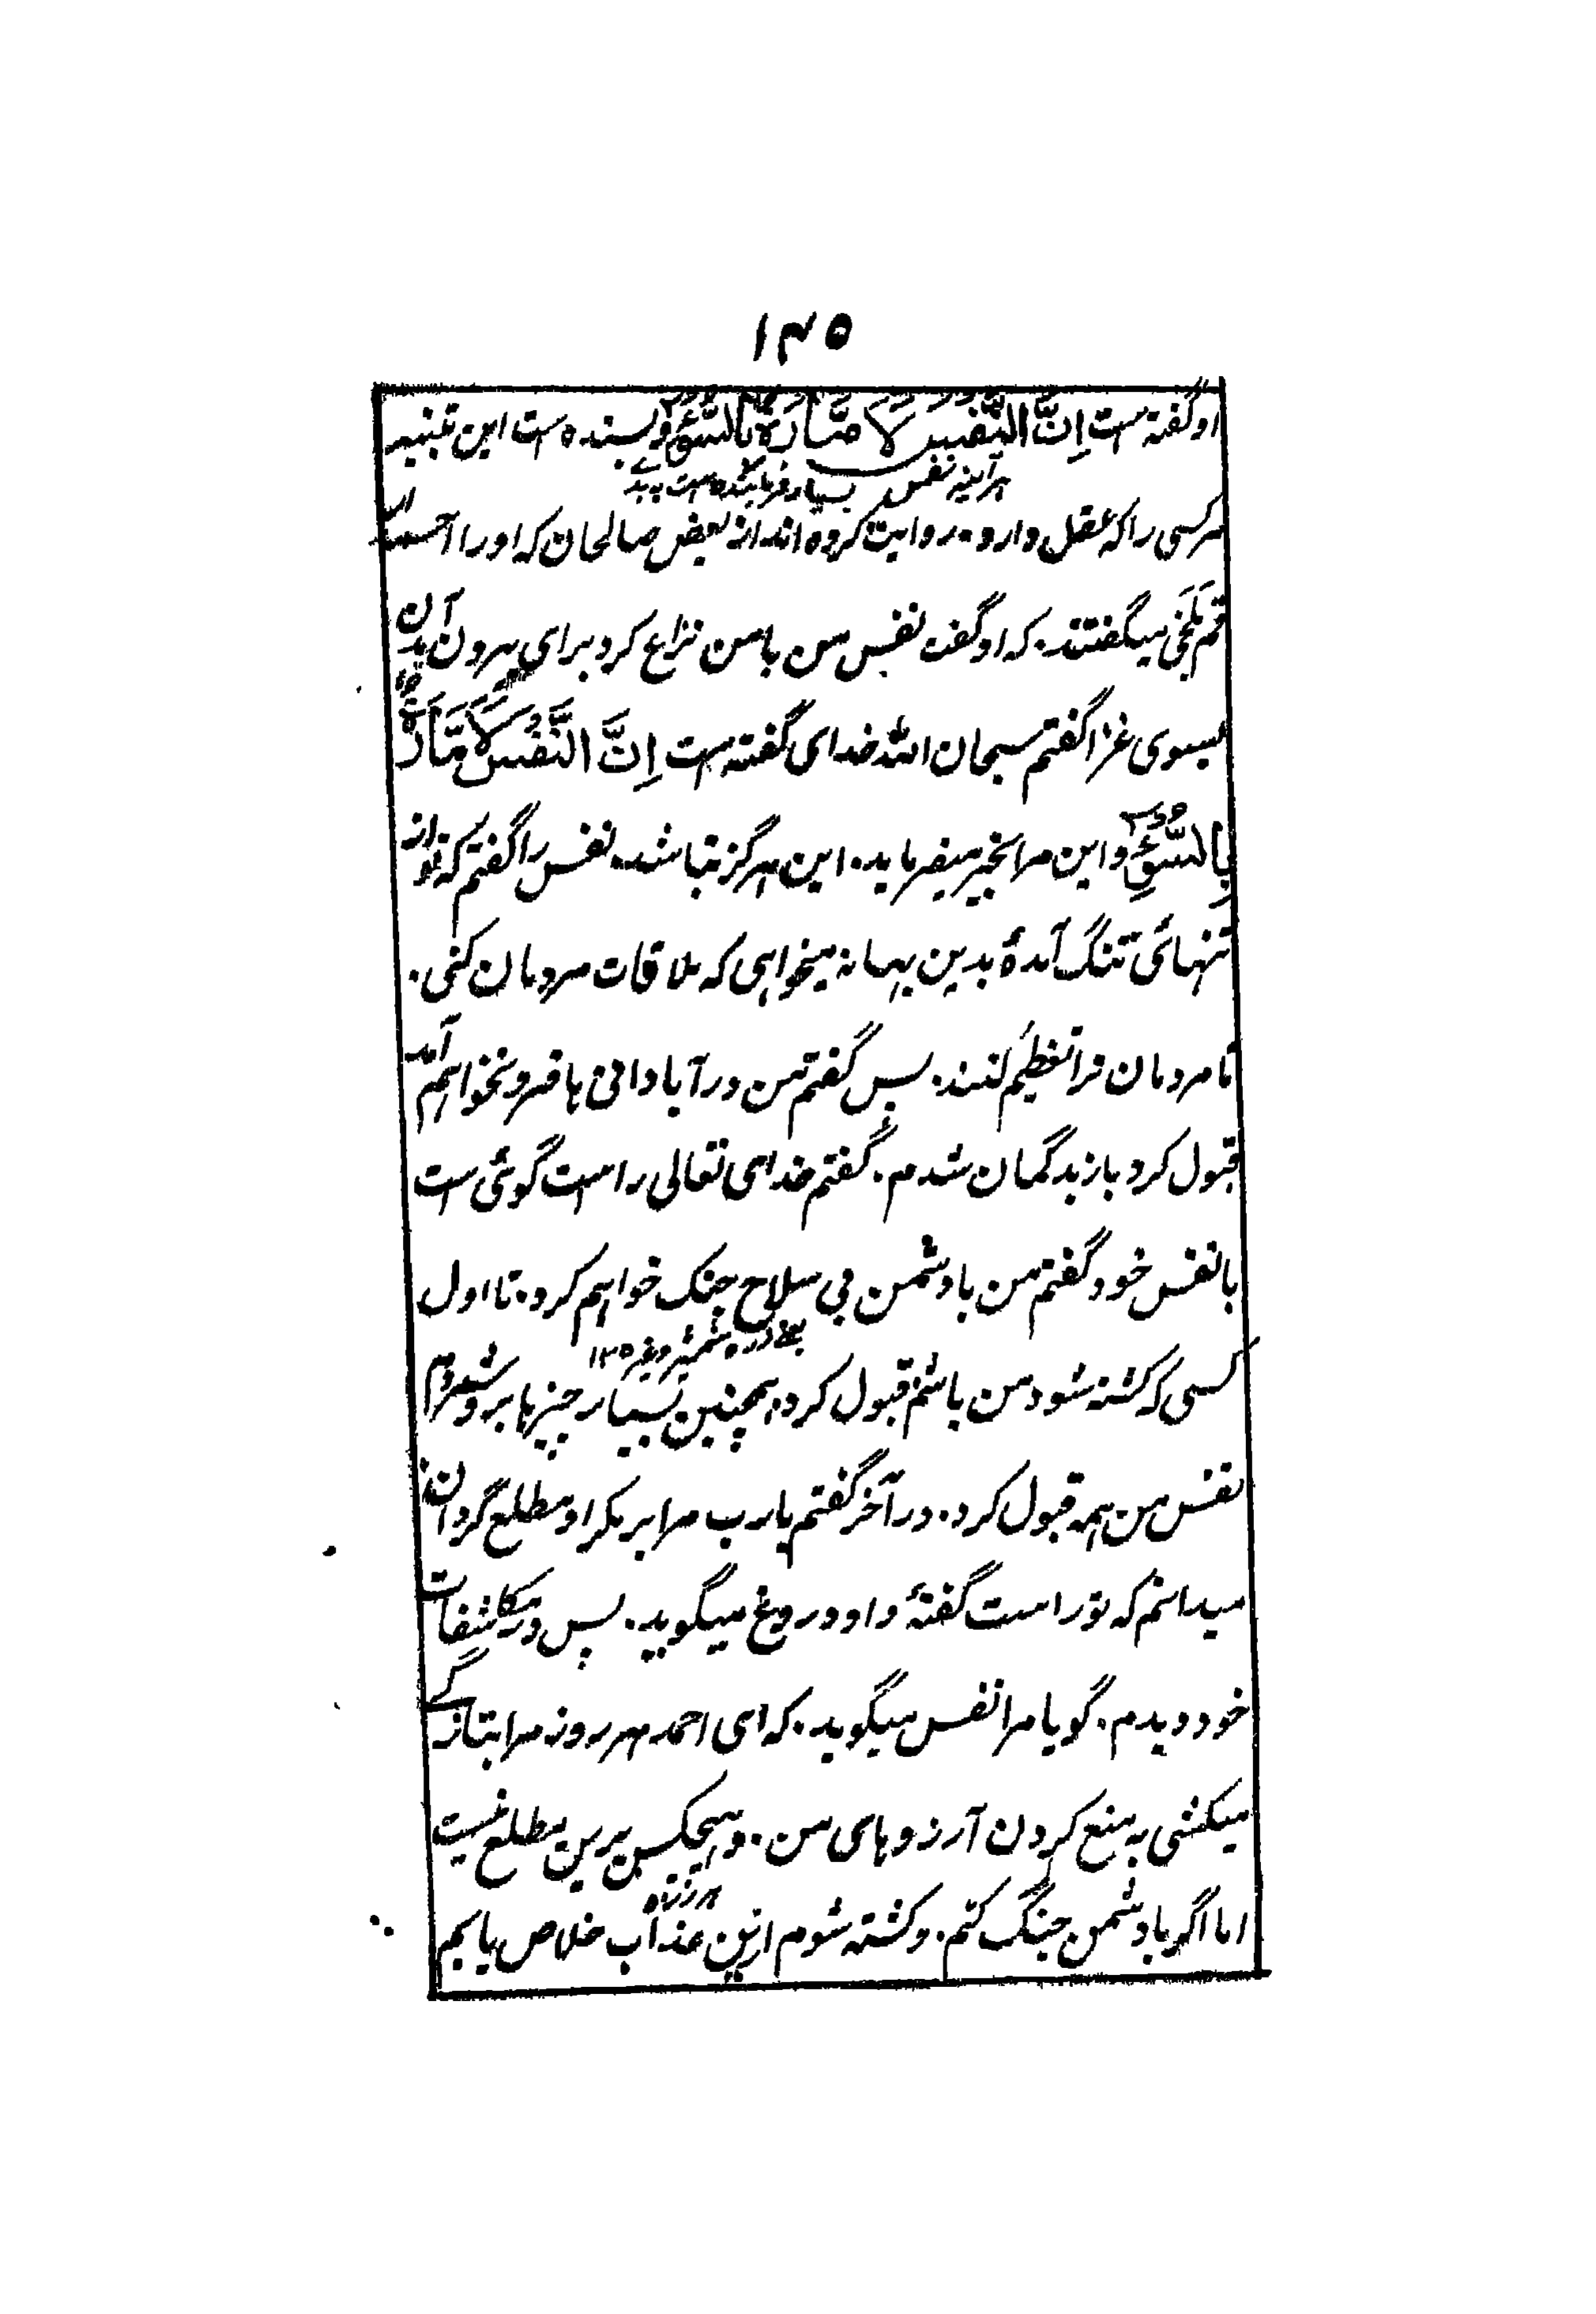 ۱۳۵
او گفته است إِنَّ النَّفْسَ لَأَمَّارَةٌ بِالسُّوْءِ و بسنده است این تنبیه
هر آئینه نفس بسیار فرماینده است به بدے
هر کسی را که عقل دارد. روایت کرده اند از بعض صالحان که او را احمد ابن
ارقم بلخی میگفتند. که او گفت نفس من با من نزاع کرد برای بیرون آمدن
بسوی غزا گفتم سبحان الله خدای گفته است إِنَّ النَّفْسَ لَأَمَّارَةٌ
بِالسُّوْءِ و این مرا بخیر میفرماید. این هرگز نباشد. نفس را گفتم که تو از
تنهائی تنگ آمدۀ بدین بهانه میخواهی که ملاقات مردمان کنی.
تا مردمان ترا تعظیم کنند. پس گفتم من در آبادانی ها فرو نخواهم آمد
قبول کرد باز بدگمان شدم. گفتم خدای تعالی راست گوئی است
با نفس خود گفتم من با دشمن بی سلاح جنگ خواهم کرد. تا اول
یعنے زره شمشیر وغیره ۱۲
کسی که کشته شود من باشم قبول کرد. همچنین بسیار چیزها برو شمردم
نفس من همه قبول کرد. در آخر گفتم یا رب مرا بر مکر او مطلع گردان
میدانم که تو راست گفتۀ و او دروغ میگوید. پس در مکاشفات
خود دیدم. گویا مرا نفس میگوید. که ای احمد هر روز مرا بتازگی
میکشی به منع کردن آرزوهای من. و هیچکس برین مطلع نیست
اما اگر با دشمن جنگ کنم. و کشته شوم ازین عذاب خلاص یابم
هر روزه